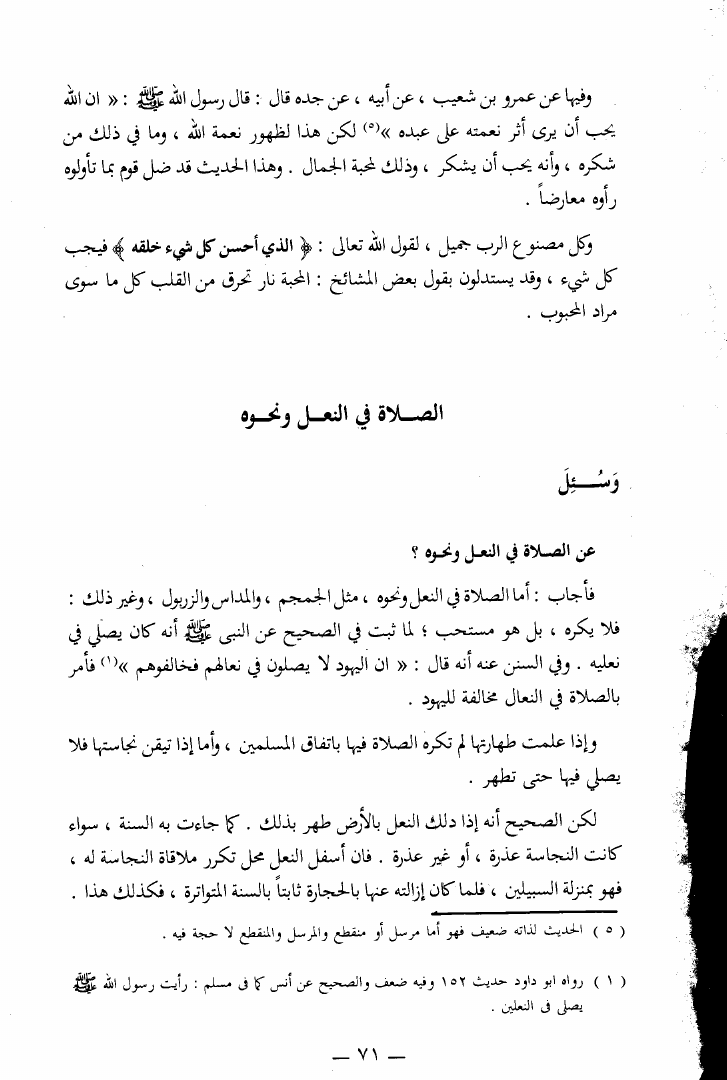 وفيها عن عمرو بن شعيب ، عن أبيه ، عن جده قال : قال رسول الله ﷺ : « ان الله
يحب أن يرى أثر نعمته على عبده »(٥) لكن هذا لظهور نعمة الله ، وما في ذلك من
شكره ، وأنه يحب أن يشكر ، وذلك لمحبة الجمال . وهذا الحديث قد ضل قوم بما تأولوه
رأوه معارضاً .
وكل مصنوع الرب جميل ، لقول الله تعالى : ﴿ الذي أحسن كل شيء خلقه ﴾ فيجب
كل شيء ، وقد يستدلون بقول بعض المشائخ : المحبة نار تحرق من القلب كل ما سوى
مراد المحبوب .
الصـلاة في النعـل ونحـوه
وَسُـئِلَ
عن الصـلاة في النعـل ونحـوه ؟
فأجاب : أما الصلاة في النعل ونحوه ، مثل الجمجم ، والمداس والزربول ، وغير ذلك :
فلا يكره ، بل هو مستحب ؛ لما ثبت في الصحيح عن النبى ﷺ أنه كان يصلي في
نعليه . وفي السنن عنه أنه قال : « ان اليهود لا يصلون في نعالهم فخالفوهم »(١) فأمر
بالصلاة في النعال مخالفة لليهود .
وإذا علمت طهارتها لم تكره الصلاة فيها باتفاق المسلمين ، وأما إذا تيقن نجاستها فلا
يصلي فيها حتى تطهر .
لكن الصحيح أنه إذا دلك النعل بالأرض طهر بذلك . كما جاءت به السنة ، سواء
كانت النجاسة عذرة ، أو غير عذرة . فان أسفل النعل محل تكرر ملاقاة النجاسة له ،
فهو بمنزلة السبيلين ، فلما كان إزالته عنها بالحجارة ثابتاً بالسنة المتواترة ، فكذلك هذا .
( ٥ ) الحديث لذاته ضعيف فهو أما مرسل أو منقطع والمرسل والمنقطع لا حجة فيه .
( ١ ) رواه ابو داود حديث ١٥٢ وفيه ضعف والصحيح عن أنس كما فى مسلم : رأيت رسول الله ﷺ
يصلى فى النعلين .
— ٧١ —